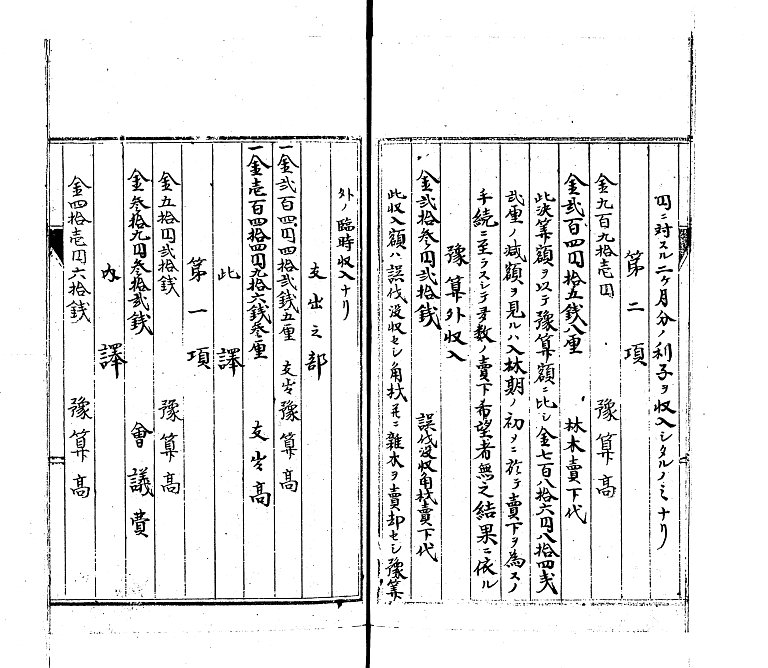 円ニ対スル二ケ月分ノ利子ヲ収入シタルノミナリ
第二項
金九百九拾壱円 豫算高
金弐百四円拾五銭八厘 林木賣下代
此决算額ヲ以テ豫算額ニ比シ金七百八拾六円八拾四戋
弐厘ノ减額ヲ見ルハ入林期ノ初メニ於テ賣下ヲ為スノ
手続ニ至ラスシテ多数ノ賣下希望者無之結果ニ依ル
豫算外収入
金弐拾叁円弐拾銭 誤伐没収角材賣下代
此収入額ハ誤伐没収セシ角材並ニ雜木ヲ賣却セシ豫算
外ノ臨時収入ナリ
支出之部
一金弐百四円四拾弐銭五厘 支出豫算高
一金壱百四拾四円九拾六銭叁厘 支出高
此譯
第一項
金五拾円弐拾銭 豫算高
金叁拾九円叁拾弐銭 會議費
内譯
金四拾壱円六拾銭 豫算高